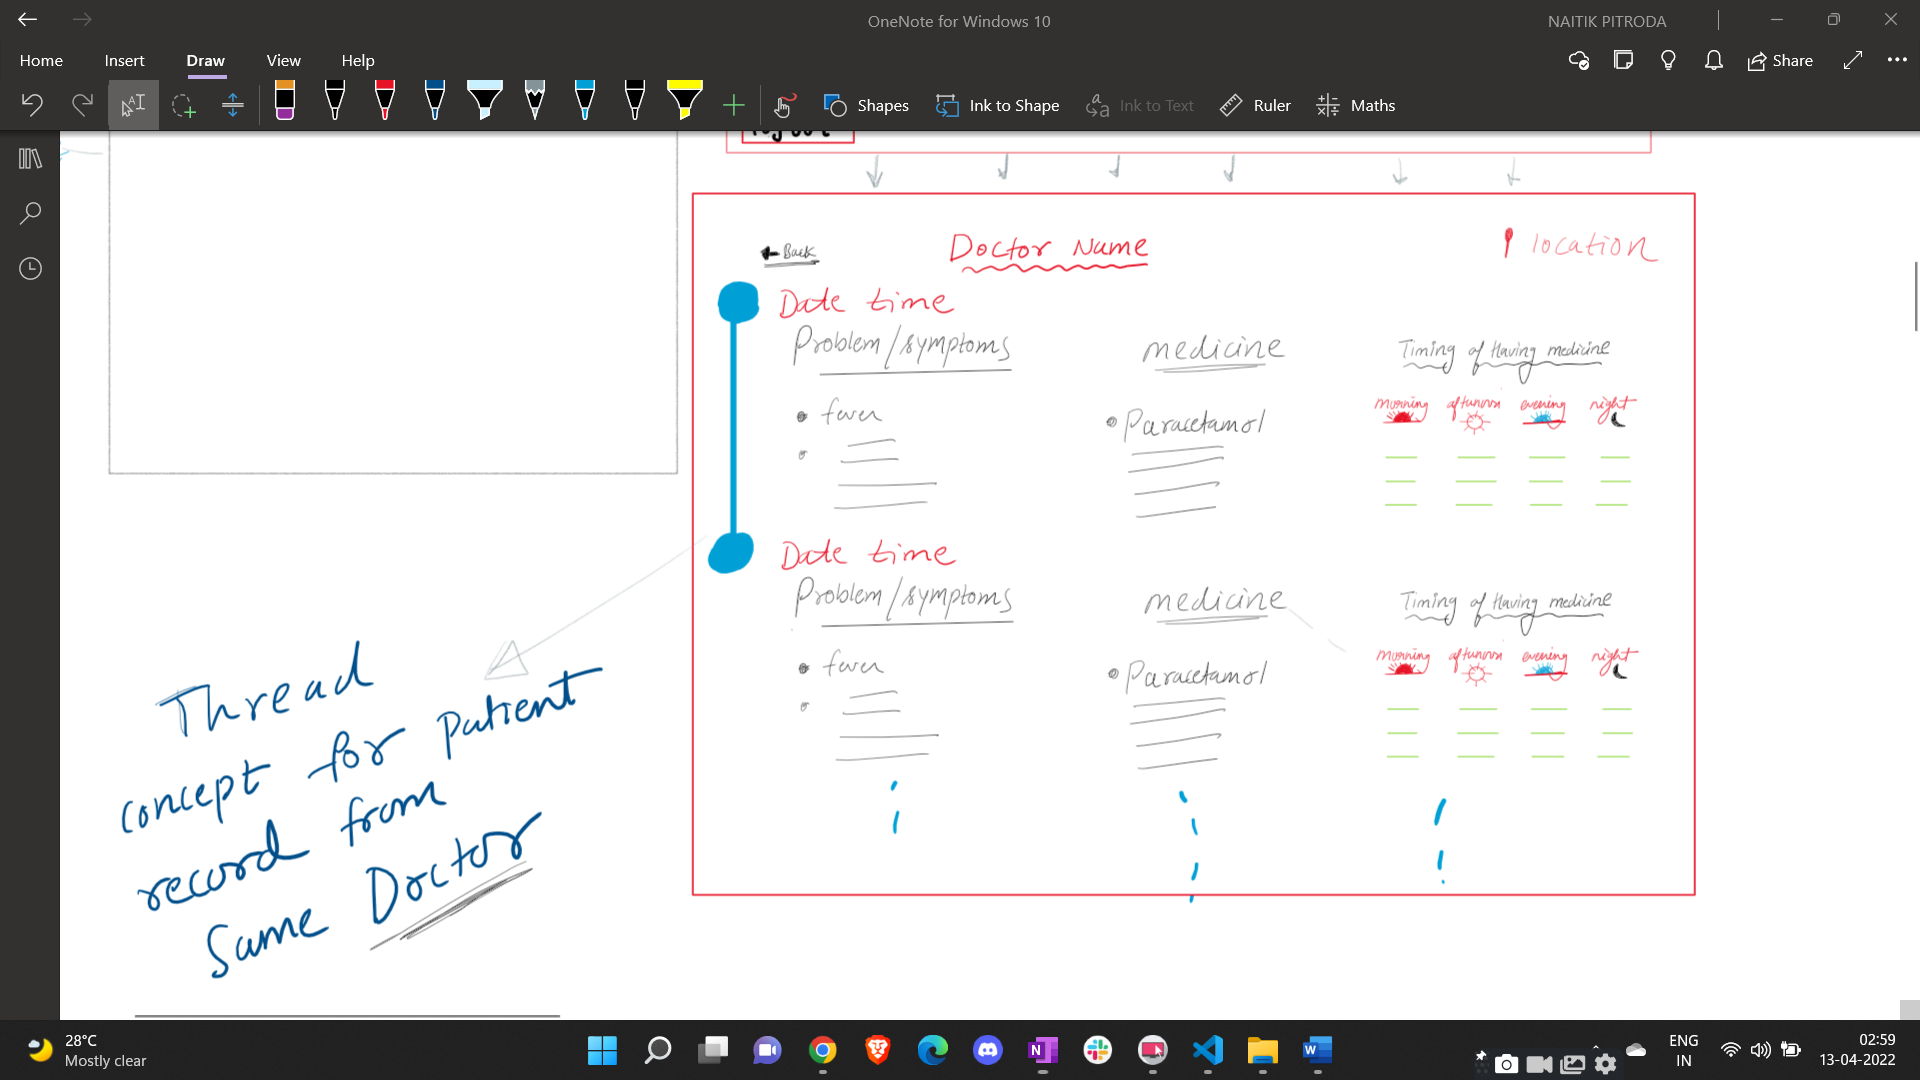 OneNote for Windows 10
NAITIK PITRODA
Home Insert Draw View Help
Share
Shapes Ink to Shape Ink to Text Ruler Maths
Back
Doctor Name
location
Date time
Problem/symptoms medicine Timing of Having medicine
morning afternoon evening night
• fever
• Paracetamol
Date time
Problem/symptoms medicine Timing of Having medicine
morning afternoon evening night
• fever
• Paracetamol
Thread
concept for patient
record from
Same Doctor
28°C
Mostly clear
ENG
IN
02:59
13-04-2022